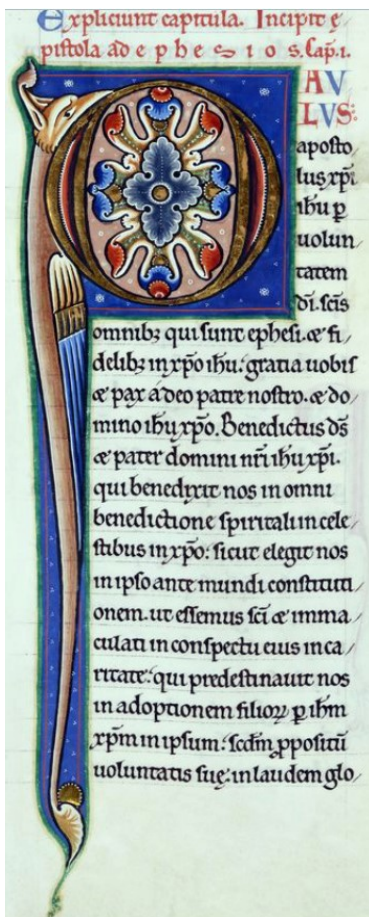 Expliciunt capitula. Incipit e
pistola ad ephesios. Cap. i.
PAV
LVS:
aposto
lus xp̄i
ihū p̱
uolun
tatem
dī. sc̄is
omnibꝫ qui sunt ephesi. æ fi
delibꝫ in xp̄o ihū. gratia uobis
æ pax a deo patre nostro. æ do
mino ihū xp̄o. Benedictus ds̄
æ pater domini nr̄i ihū xp̄i.
qui benedixit nos in omni
benedictione spiritali in cele
stibus in xp̄o: sicut elegit nos
in ipso ante mundi constituti
onem. ut essemus sc̄i æ imma
culati in conspectu eius in ca
ritate: qui predestinauit nos
in adoptionem filioꝝ ꝑ ihm̄
xp̄m in ipsum: scdm̄ ꝓpositū
uoluntatis suę: in laudem glo